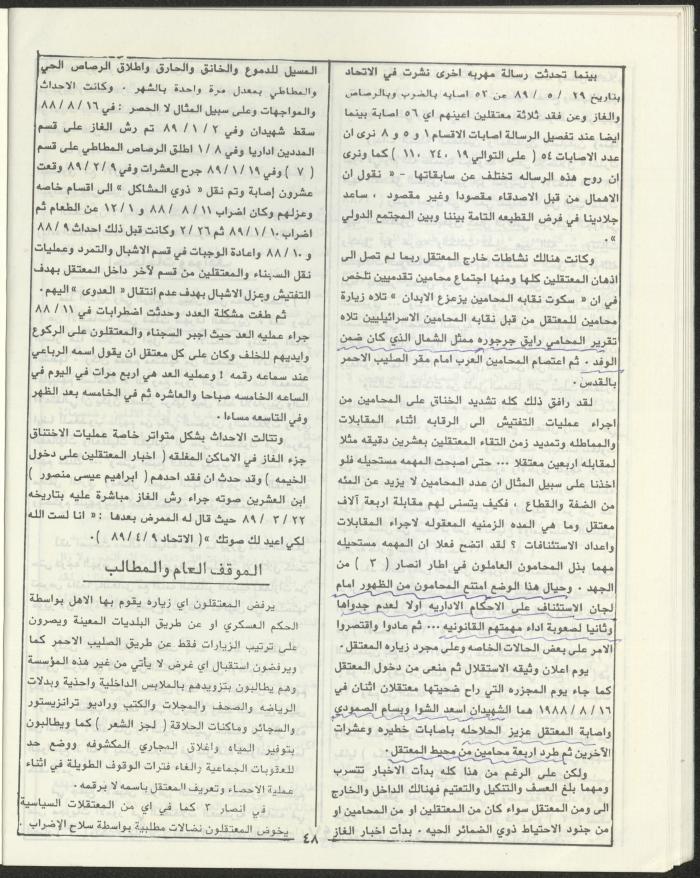 بينما تحدثت رسالة مهربه اخرى نشرت في الاتحاد
بتاريخ ٢٩ / ٥ / ٨٩ عن ٥٣ اصابه بالضرب وبالرصاص
والغاز وعن فقد ثلاثة معتقلين اعينهم اي ٥٦ اصابة بينما
ايضا عند تفصيل الرسالة اصابات الاقسام ١ و ٥ و ٨ نرى ان
عدد الاصابات ٥٤ ( على التوالي ١٩ ، ٢٤ ، ١١ ) كما ونرى
ان روح هذه الرساله تختلف عن سابقاتها - « نقول ان
الاهمال من قبل الاصدقاء مقصودا وغير مقصود ، ساعد
جلادينا في فرض القطيعه التامة بيننا وبين المجتمع الدولي
» .
وكانت هنالك نشاطات خارج المعتقل ربما لم تصل الى
اذهان المعتقلين كلها ومنها اجتماع محامين تقدميين تلخص
في ان « سكوت نقابه المحامين يزعزع الابدان » تلاه زيارة
محامين للمعتقل من قبل نقابه المحامين الاسرائيليين تلاه
تقرير المحامي رايق جرجوره ممثل الشمال الذي كان ضمن
الوفد . ثم اعتصام المحامين العرب امام مقر الصليب الاحمر
بالقدس .
لقد رافق ذلك كله تشديد الخناق على المحامين من
اجراء عمليات التفتيش الى الرقابه اثناء المقابلات
والمماطله وتمديد زمن التقاء المعتقلين بعشرين دقيقه مثلا
لمقابله اربعين معتقلا ... حتى اصبحت المهمه مستحيله فلو
اخذنا على سبيل المثال ان عدد المحامين لا يزيد عن المئه
من الضفة والقطاع ، فكيف يتسنى لهم مقابلة اربعة آلاف
معتقل وما هي المده الزمنيه المعقوله لاجراء المقابلات
واعداد الاستئنافات ؟ لقد اتضح فعلا ان المهمه مستحيله
مهما بذل المحامون العاملون في اطار انصار ( ٣ ) من
الجهد . وحيال هذا الوضع امتنع المحامون من الظهور امام
لجان الاستئناف على الاحكام الاداريه اولا لعدم جدواها
وثانيا لصعوبة اداء مهمتهم القانونيه ... ثم عادوا واقتصروا
الامر على بعض الحالات الخاصه وعلى مجرد زياره المعتقل .
يوم اعلان وثيقه الاستقلال ثم منعي من دخول المعتقل
كما جاء يوم المجزره التي راح ضحيتها معتقلان اثنان في
١٩٨٨/٨/١٦ هما الشهيدان اسعد الشوا وبسام الصمودي
واصابة المعتقل عزيز الحلاحله باصابات خطيره وعشرات
الآخرين ثم طرد اربعة محامين من محيط المعتقل .
ولكن على الرغم من هذا كله بدأت الاخبار تتسرب
ومهما بلغ العسف والتنكيل والتعتيم فهنالك الداخل والخارج
الى ومن المعتقل سواء كان من المعتقلين او من المحامين او
من جنود الاحتياط ذوي الضمائر الحيه . بدأت اخبار الغاز
المسيل للدموع والخانق والحارق واطلاق الرصاص الحي
والمطاطي بمعدل مرة واحدة بالشهر . وكانت الاحداث
والمواجهات وعلى سبيل المثال لا الحصر : في ١٦ / ٨ / ٨٨
سقط شهيدان وفي ٢ / ١ / ٨٩ تم رش الغاز على قسم
المددين اداريا وفي ٨ / ١ اطلق الرصاص المطاطي على قسم
( ٧ ) وفي ١٩ / ١ / ٨٩ جرح العشرات وفي ٩ / ٢ / ٨٩ وقعت
عشرون إصابة وتم نقل « ذوي المشاكل » الى اقسام خاصه
وعزلهم وكان اضراب ١١ / ٨ / ٨٨ و ١ / ١٢ عن الطعام ثم
اضراب ١٠ / ١ / ٨٩ ثم ٢٦ / ٢ وكانت قبل ذلك احداث ٩ / ٨٨
و ١٠ / ٨٨ واعادة الوجبات في قسم الاشبال والتمرد وعمليات
نقل السجناء والمعتقلين من قسم لآخر داخل المعتقل بهدف
التفتيش وعزل الاشبال بهدف عدم انتقال « العدوى » اليهم .
ثم طغت مشكلة العدد وحدثت اضطرابات في ١١ / ٨٨
جراء عمليه العد حيث اجبر السجناء والمعتقلون على الركوع
وايديهم للخلف وكان على كل معتقل ان يقول اسمه الرباعي
عند سماعه رقمه ! وعمليه العد هي اربع مرات في اليوم في
الساعه الخامسه صباحا والعاشره ثم في الخامسه بعد الظهر
وفي التاسعه مساءا .
وتتالت الاحداث بشكل متواتر خاصة عمليات الاختناق
جراء الغاز في الاماكن المغلقه ( اخبار المعتقلين على دخول
الخيمه ) وقد حدث ان فقد احدهم ( ابراهيم عيسى منصور )
ابن العشرين صوته جراء رش الغاز مباشرة عليه بتاريخه
٢٢ / ٣ / ٨٩ حيث قال له الممرض بعدها : « انا لست الله
لكي اعيد لك صوتك » ( الاتحاد ٩ / ٤ / ٨٩ ) .
الموقف العام والمطالب
يرفض المعتقلون اي زياره يقوم بها الاهل بواسطة
الحكم العسكري او عن طريق البلديات المعينة ويصرون
على ترتيب الزيارات فقط عن طريق الصليب الاحمر كما
ويرفضون استقبال اي غرض لا يأتي من غير هذه المؤسسة
وهم يطالبون بتزويدهم بالملابس الداخلية واحذية وبدلات
الرياضه والصحف والمجلات والكتب وراديو ترانزيستور
والسجائر وماكنات الحلاقة ( لجز الشعر ) كما ويطالبون
بتوفير المياه واغلاق المجاري المكشوفه ووضع حد
للعقوبات الجماعية والغاء فترات الوقوف الطويلة في اثناء
عملية الاحصاء وتعريف المعتقل باسمه لا برقمه .
في انصار ٣ كما في اي من المعتقلات السياسية
يخوض المعتقلون نضالات مطلبية بواسطة سلاح الإضراب .
٤٨